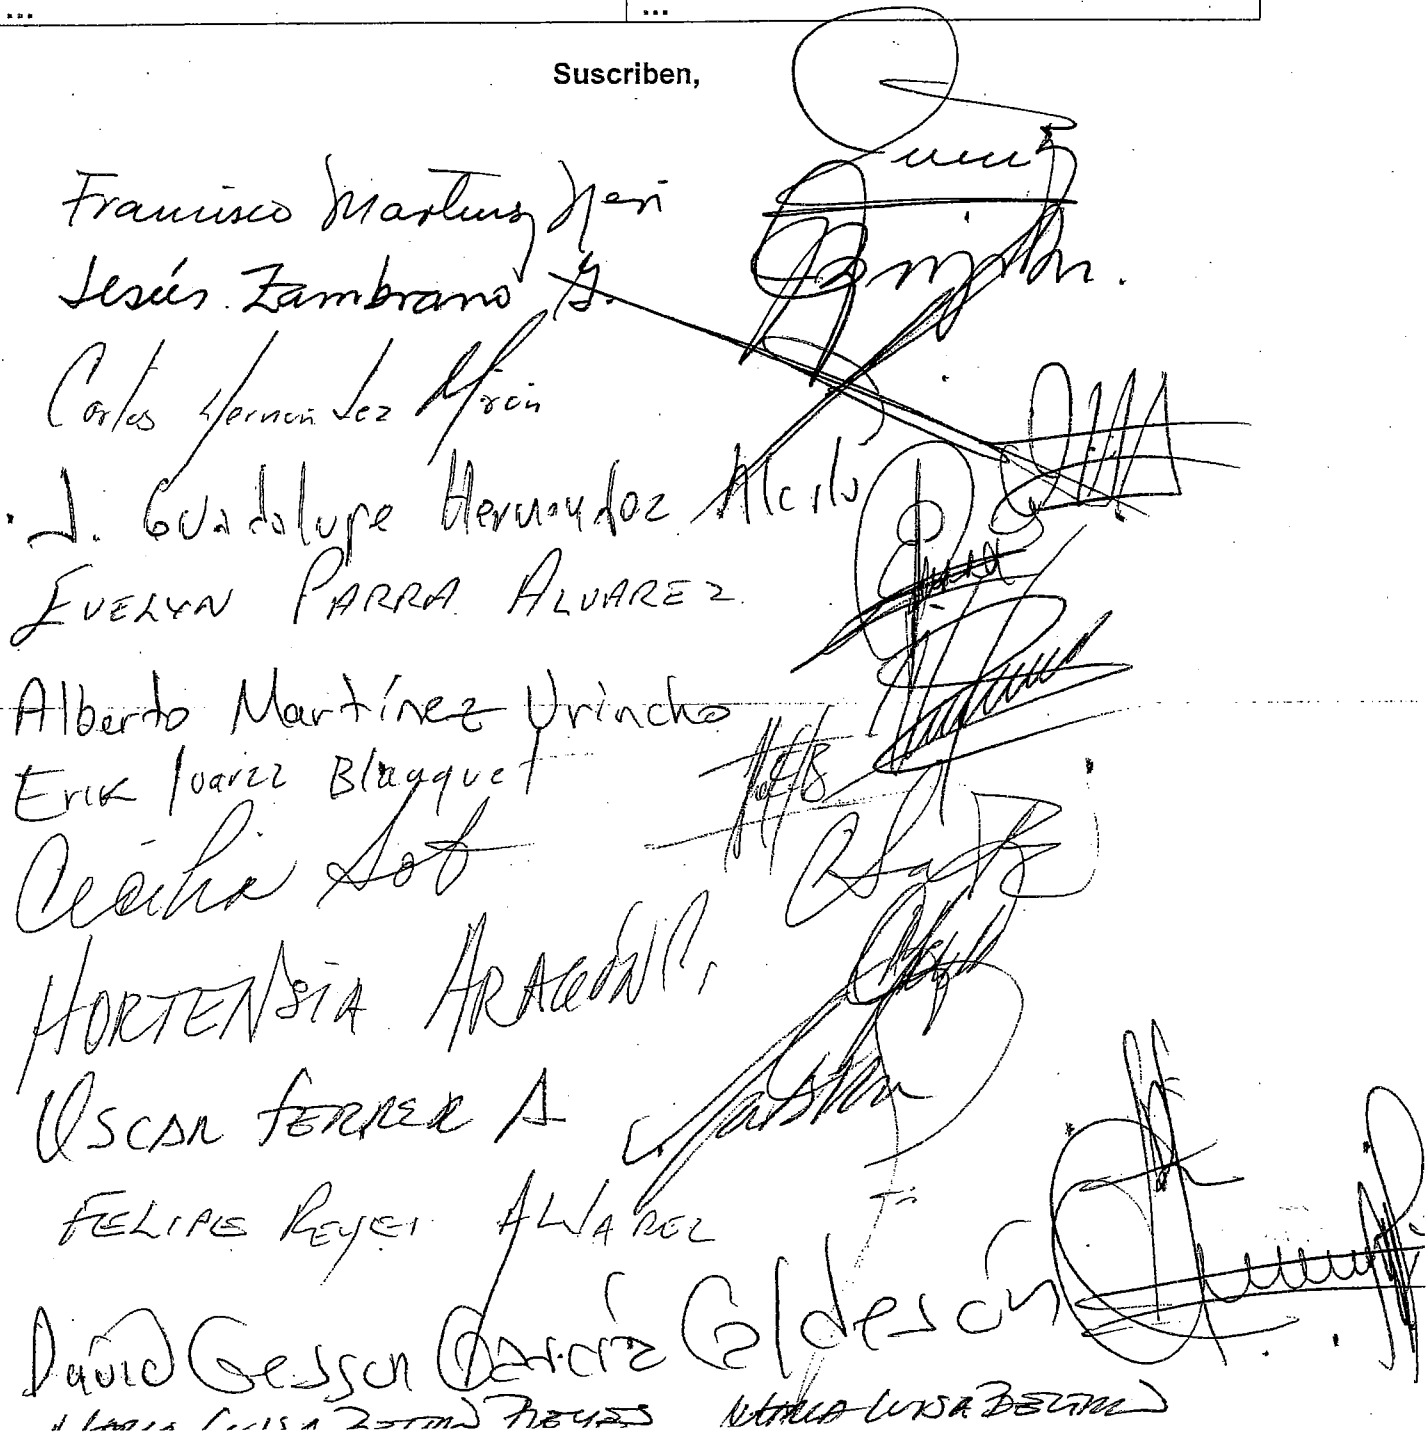 ... ...
Suscriben,
Francisco Martínez Neri
Jesús Zambrano G.
Carlos Hernández Mirón
J. Guadalupe Hernández Alcalá
EVELYN PARRA ALVAREZ
Alberto Martínez Urincho
Erik Juárez Blanquet
Cecilia Soto
HORTENSIA ARAGÓN
OSCAR FERRER A
FELIPE REYES ALVAREZ
David Gesson García Calderón
MARIA LUISA BELTRÁN REYES MARIA LUISA BELTRÁN